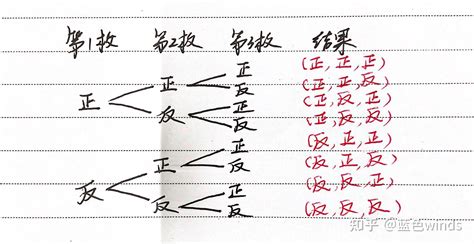 第1枚 第2枚 第3枚 结果
正 (正,正,正)
正 反 (正,正,反)
正 正 (正,反,正)
反 反 (正,反,反)
正 (反,正,正)
正 反 (反,正,反)
反 正 (反,反,正)
反 反 (反,反,反)
知乎 @蓝色winds